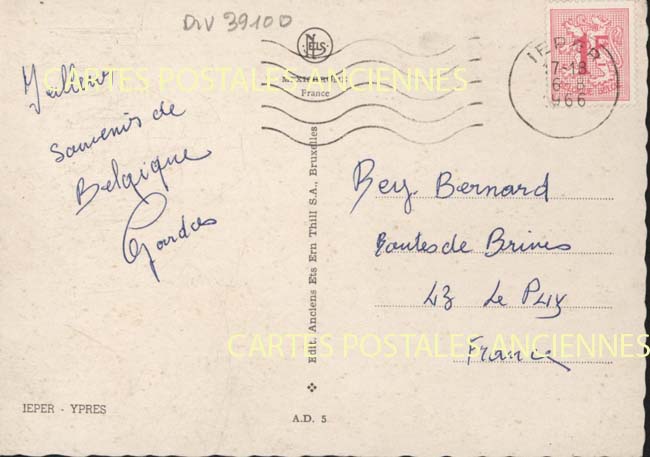 Div 39100
NELS
France
IEPER
17-18
1966
CARTES POSTALES ANCIENNES
souvenirs de
Belgique
Rey. Bernard
Routes de Brives
43 Le Puy
France
CARTES POSTALES ANCIENNES
Edit. Anciens Ets Ern Thill S.A., Bruxelles
IEPER - YPRES
A.D. 5